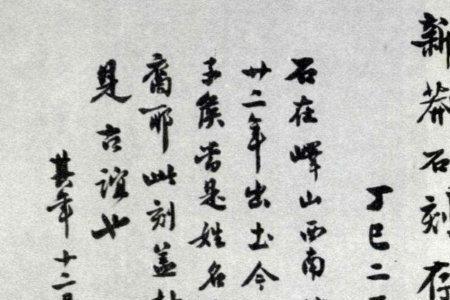 新莽石刻存
丁巳二
石在峄山西南
廿二年出土今
子侯当是姓名
裔耶此刻盖
見古谊也
其年十二月